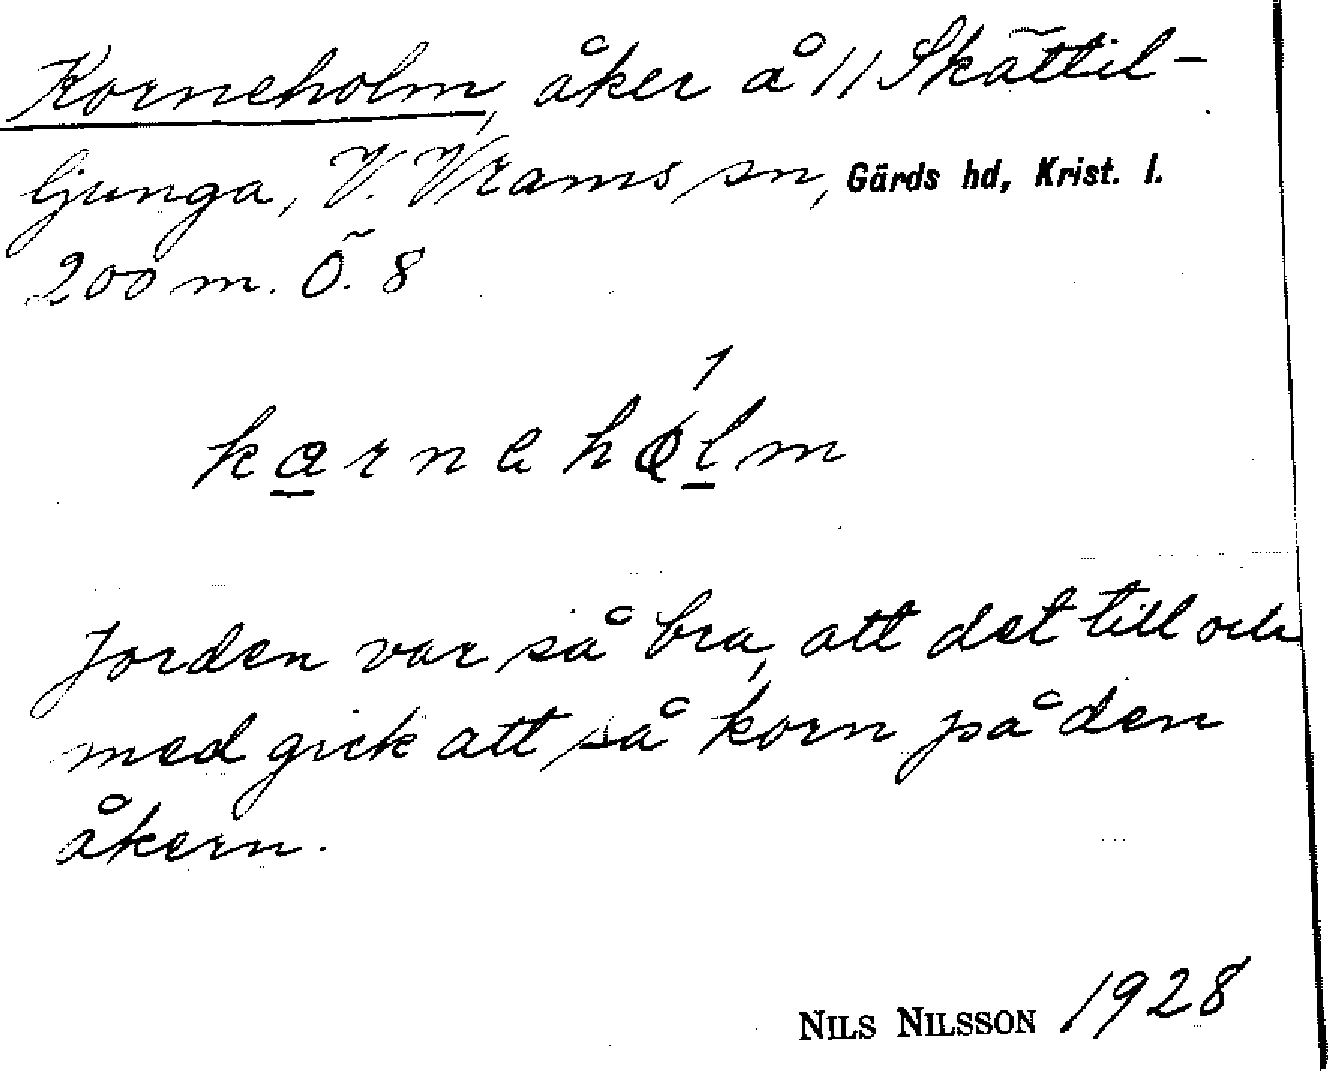 Korneholm, åker å 11 Skättil-
ljunga, V. Vrams sn, Gärds hd, Krist. l.
200 m. Ö. 8
1
karnahålm
Jorden var så bra, att det till och
med gick att så korn på den
åkern.
NILS NILSSON 1928